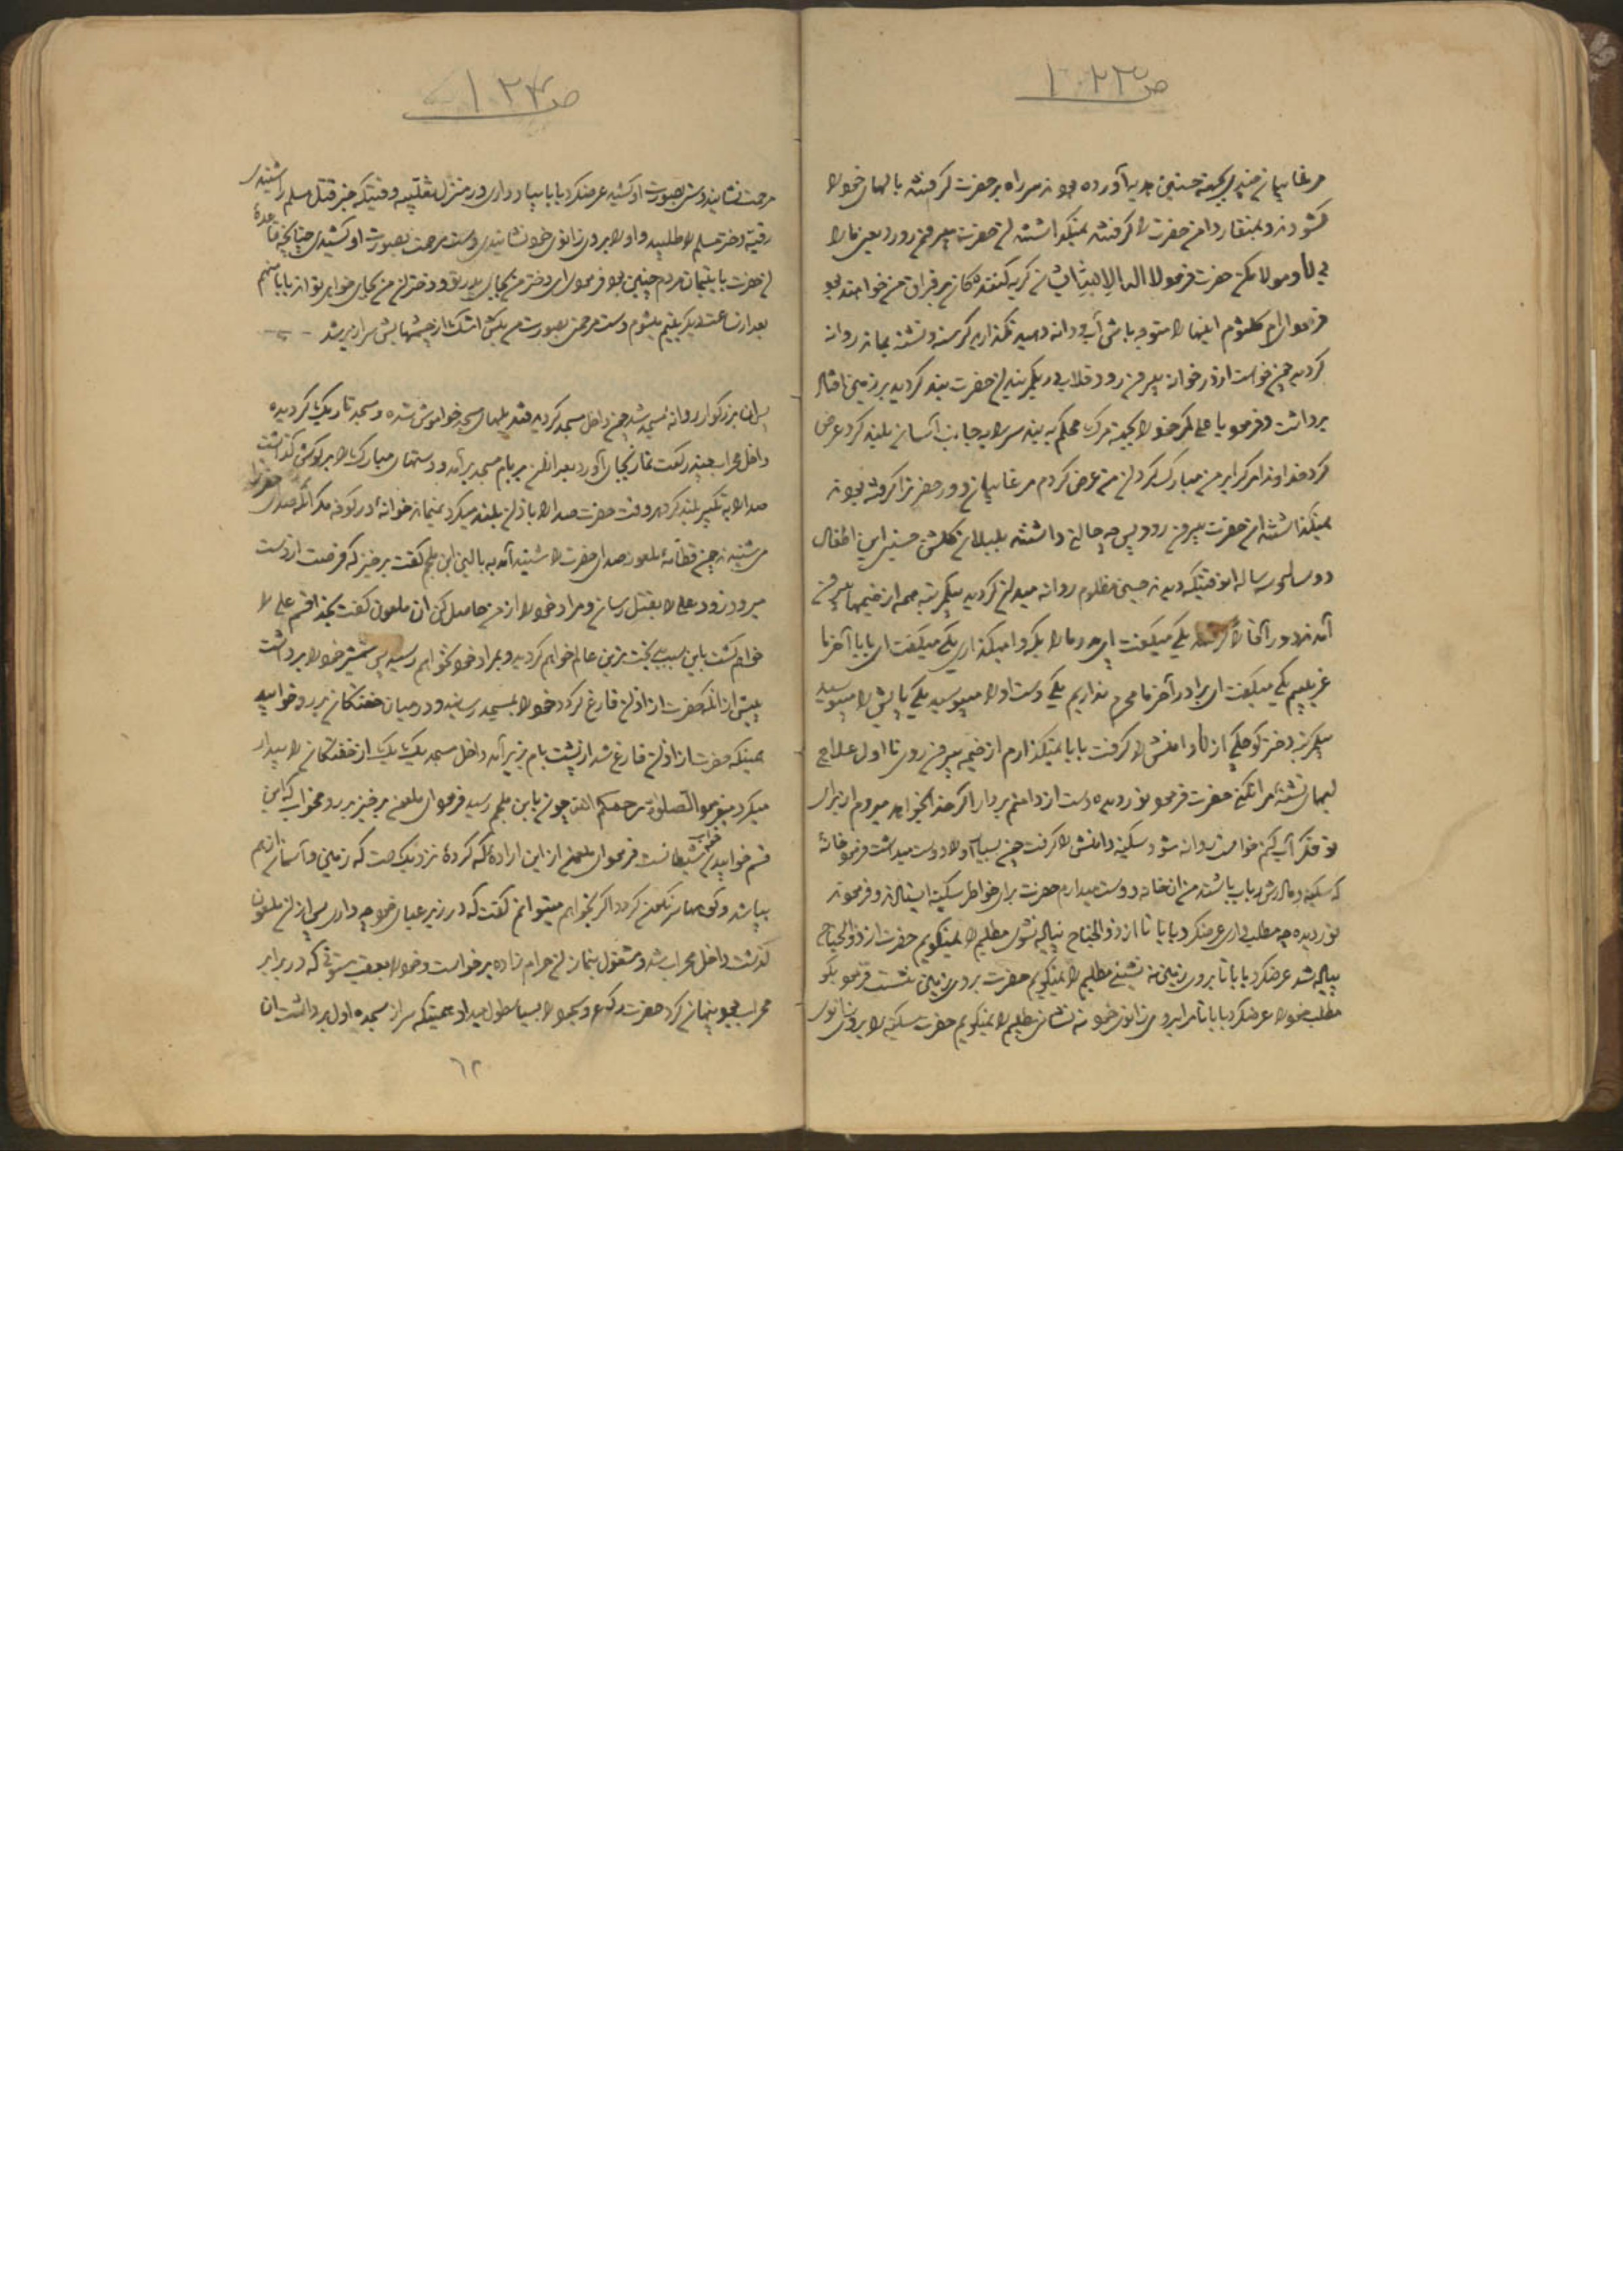 ص ١٠٢٣
مرغابیان چند بجهة حسنین هدیه آورده بودند سر راه بر حضرت گرفتند بالهای خود را
گشودند و بمنقار دامن حضرت را گرفتند نمیگذاشتند آن حضرت بیرون رود یعنی ما را
بی مولا مکن حضرت فرمود
فرمود ای ام کلثوم اینها را متوجه باش آب و دانه دهید نگذارید گرسنه و تشنه بمانند روانه
گردید چون خواست از در خانه بیرون رود قلاب در بکمربند آن حضرت بند گردید بر زمین افتاد
برداشت و فرمود یا علی کمر خود را بجهة مرگ محکم ببند سر را به جانب آسمان بلند کرد عرض
کرد خداوندا مرگ را بر من مبارک گردان من عرض کردم مرغابیان دور حضرت را گرفته بودند
نمیگذاشتند آن حضرت بیرون رود پس چه حالتی داشتند بلبلان گلشن حسین این اطفال
دو ساله و سه ساله وقتیکه دیدند حسین مظلوم روانه میدان گردید بیکمرتبه همه از خیمها بیرون
آمدند دور آقا را گرفتند یکی میگفت ای پدر ما را بکه وا میگذاری یکی میگفت ای بابا آخر ما
غریبیم یکی میگفت ای برادر آخر ما محرم نداریم یکی دست او را میبوسید یکی پایش را میبوسید
بیکمرتبه دختر کوچکی از آن دامنش را گرفت بابا نمیگذارم از خیمه بیرون روی تا اول علاج
لبهای تشنهٔ مرا نکنی حضرت فرمود نور دیده دست از دامنم بردار اگر خدا بخواهد میروم از برای
تو فکر آب کنم خواست روانه شود سکینه دامنش را گرفت چون بسیار او را دوست میداشت فرمود خانهٔ
که سکینه و مادرش رباب باشند من آن خانه دوست میدارم حضرت برای خواطر سکینه ایستادند و فرمودند
نور دیده چه مطلب داری عرضکرد بابا تا از ذوالجناح پیاده نشوی مطلبم را نمیگویم حضرت از ذوالجناح
پیاده شد عرضکرد بابا تا بر روی زمین ننشینی مطلبم را نمیگویم حضرت بر روی زمین نشست فرمود بگو
مطلب خود را عرضکرد بابا تا مرا بر روی زانوی خود ننشانی مطلبم را نمیگویم حضرت سکینه را بر روی زانوی
ص ١٠٢٤
مرحمت نشانید دستی بصورت او کشید عرضکرد بابا بیاد داری در منزل ثعلبیه وقتیکه خبر قتل مسلم را شنیدی
رقیه دختر مسلم را طلبیدی و او را بر روی زانوی خود نشانیدی و دست مرحمت بصورت او کشیدی چنانچه قاعدهٔ
آن حضرت با یتیمان مردم چنین بود فرمودی ای دختر من بجای پدر تو و دختران من بجای خواهر تو اند بابا منهم
بعد از ساعت دیگر یتیم میشوم دست مرحمت بصورت من بکش اشک از چشمهایش سرازیر شد
پس آن بزرگوار روانه مسجد شد چون داخل مسجد گردید قندیلهای مسجد خواموش شده و مسجد تاریک گردیده
داخل محراب چند رکعت نماز بجای آورد بعد از آن بر بام مسجد برآمد و دستهای مبارک را بر گوش گذاشت
صدا را به تکبیر بلند کرد هر وقت حضرت صدا را باذان بلند میکرد نمیماند خوانهٔ در کوفه مگر آنکه صدای حضرت را
می شنیدند چون قطامهٔ ملعونه صدای حضرت را شنید آمد به بالین ابن ملجم گفت برخیز که فرصت از دست
میرود زود علی را بقتل رسان و مراد خود را از من حاصل کن آن ملعون گفت بخدا قسم علی را
خواهم کشت باین سبب بدبخت ترین عالم خواهم گردید و بمراد خود نخواهم رسید پس شمشیر خود را برداشت
پیش از آنکه حضرت از اذان فارغ گردد خود را بمسجد رسانید و در میان خفتگان بر رو خوابید
همینکه حضرت از اذان فارغ شد از پشت بام بزیر آمد داخل مسجد یک یک از خفتگان را بیدار
میکرد میفرمود الصلوة یرحمکم الله چون بابن ملجم رسید فرمود ای ملعون برخیز بر رو مخواب که این
قسم خوابیدن خواب شیطانست فرمود ای ملعون از این ارادهٔ که کردهٔ نزدیکست که زمین و آسمان از هم
بپاشد و کوهها سرنگون گردد اگر بخواهم میتوانم گفت که در زیر عبای خود چه داری پس از آن ملعون
گذشت داخل محراب شد و مشغول بنماز آن حرام زاده برخواست و خود را بعقب ستونی که در برابر
محراب بود پنهان کرد حضرت رکوع و سجود را بسیار طول میداد همینکه سر از سجدهٔ اول برداشت آن
٦٢